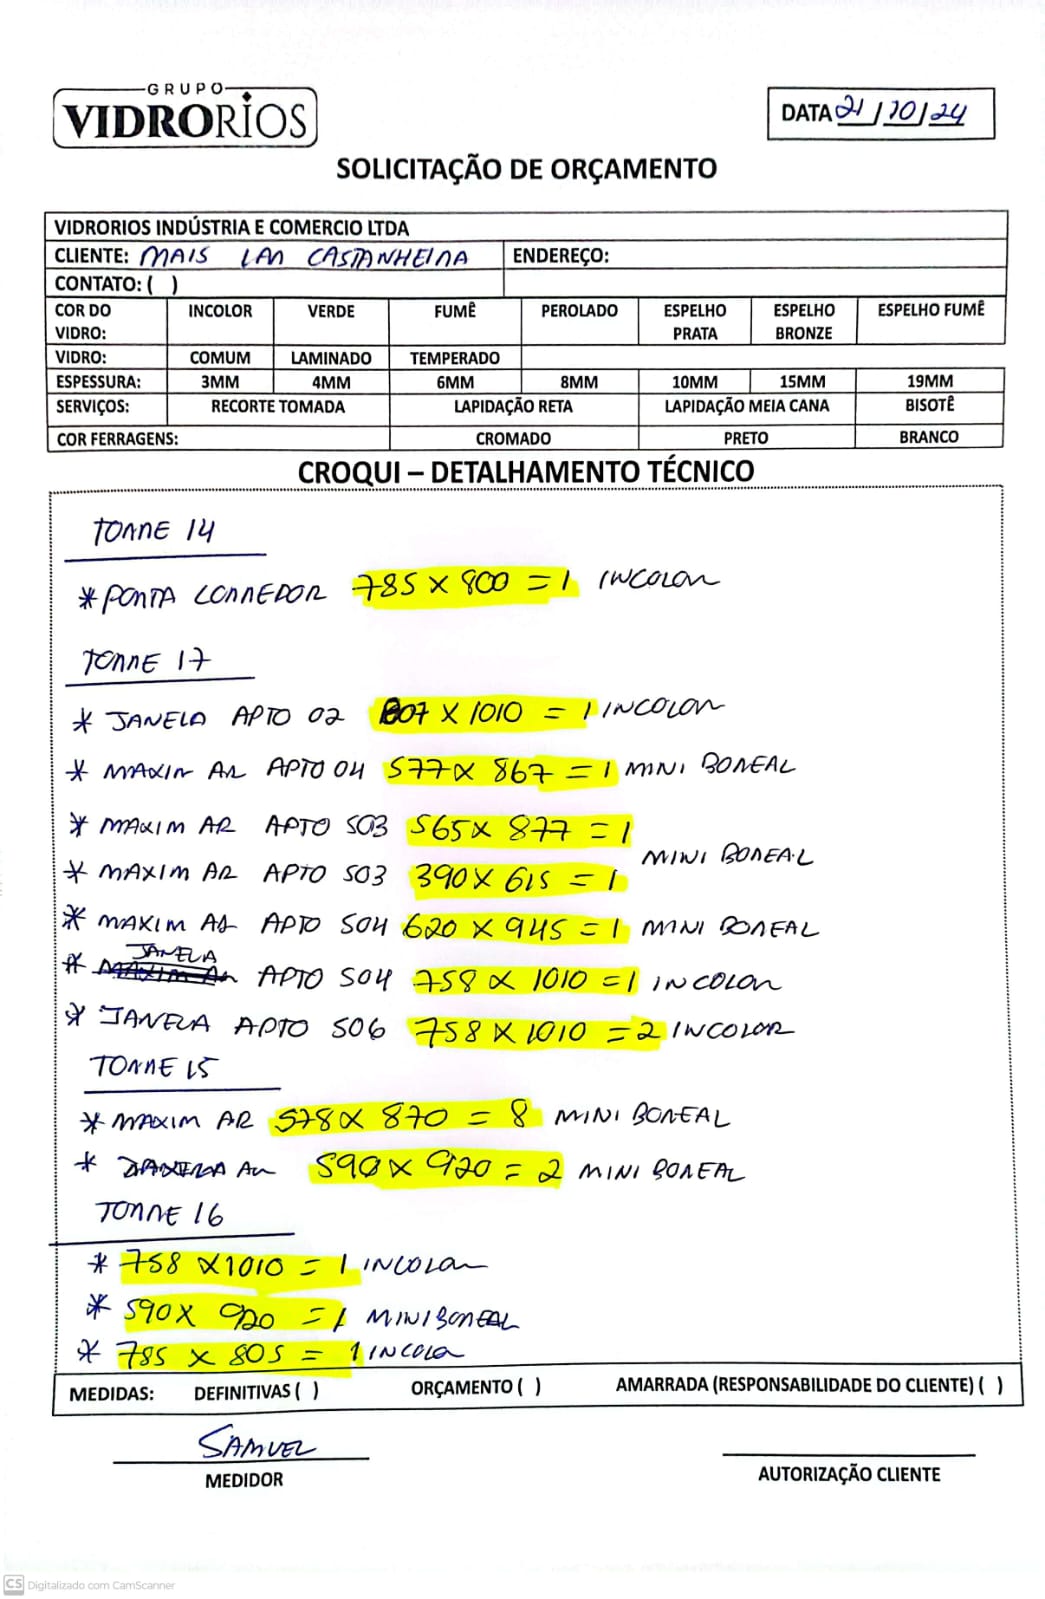 GRUPO
VIDRORIOS
DATA 21/10/24
SOLICITAÇÃO DE ORÇAMENTO
VIDRORIOS INDÚSTRIA E COMERCIO LTDA
CLIENTE: MAIS LAR CASTANHEIRA ENDEREÇO:
CONTATO: ( )
COR DO VIDRO: INCOLOR VERDE FUMÊ PEROLADO ESPELHO PRATA ESPELHO BRONZE ESPELHO FUMÊ
VIDRO: COMUM LAMINADO TEMPERADO
ESPESSURA: 3MM 4MM 6MM 8MM 10MM 15MM 19MM
SERVIÇOS: RECORTE TOMADA LAPIDAÇÃO RETA LAPIDAÇÃO MEIA CANA BISOTÊ
COR FERRAGENS: CROMADO PRETO BRANCO
CROQUI – DETALHAMENTO TÉCNICO
TORRE 14
* PORTA CORREDOR 785 X 800 = 1 INCOLOR
TORRE 17
* JANELA APTO 02 807 X 1010 = 1 INCOLOR
* MAXIM AR APTO 04 577 X 867 = 1 MINI BOREAL
* MAXIM AR APTO 503 565 X 877 = 1
MINI BOREAL
* MAXIM AR APTO 503 390 X 615 = 1
* MAXIM AR APTO 504 620 X 945 = 1 MINI BOREAL
* JANELA APTO 504 758 X 1010 = 1 INCOLOR
* JANELA APTO 506 758 X 1010 = 2 INCOLOR
TORRE 15
* MAXIM AR 578 X 870 = 8 MINI BOREAL
* AR 590 X 920 = 2 MINI BOREAL
TORRE 16
* 758 X 1010 = 1 INCOLOR
* 590 X 920 = 1 MINI BOREAL
* 785 X 805 = 1 INCOLO
MEDIDAS: DEFINITIVAS ( ) ORÇAMENTO ( ) AMARRADA (RESPONSABILIDADE DO CLIENTE) ( )
SAMUEL
MEDIDOR
AUTORIZAÇÃO CLIENTE
CS Digitalizado com CamScanner